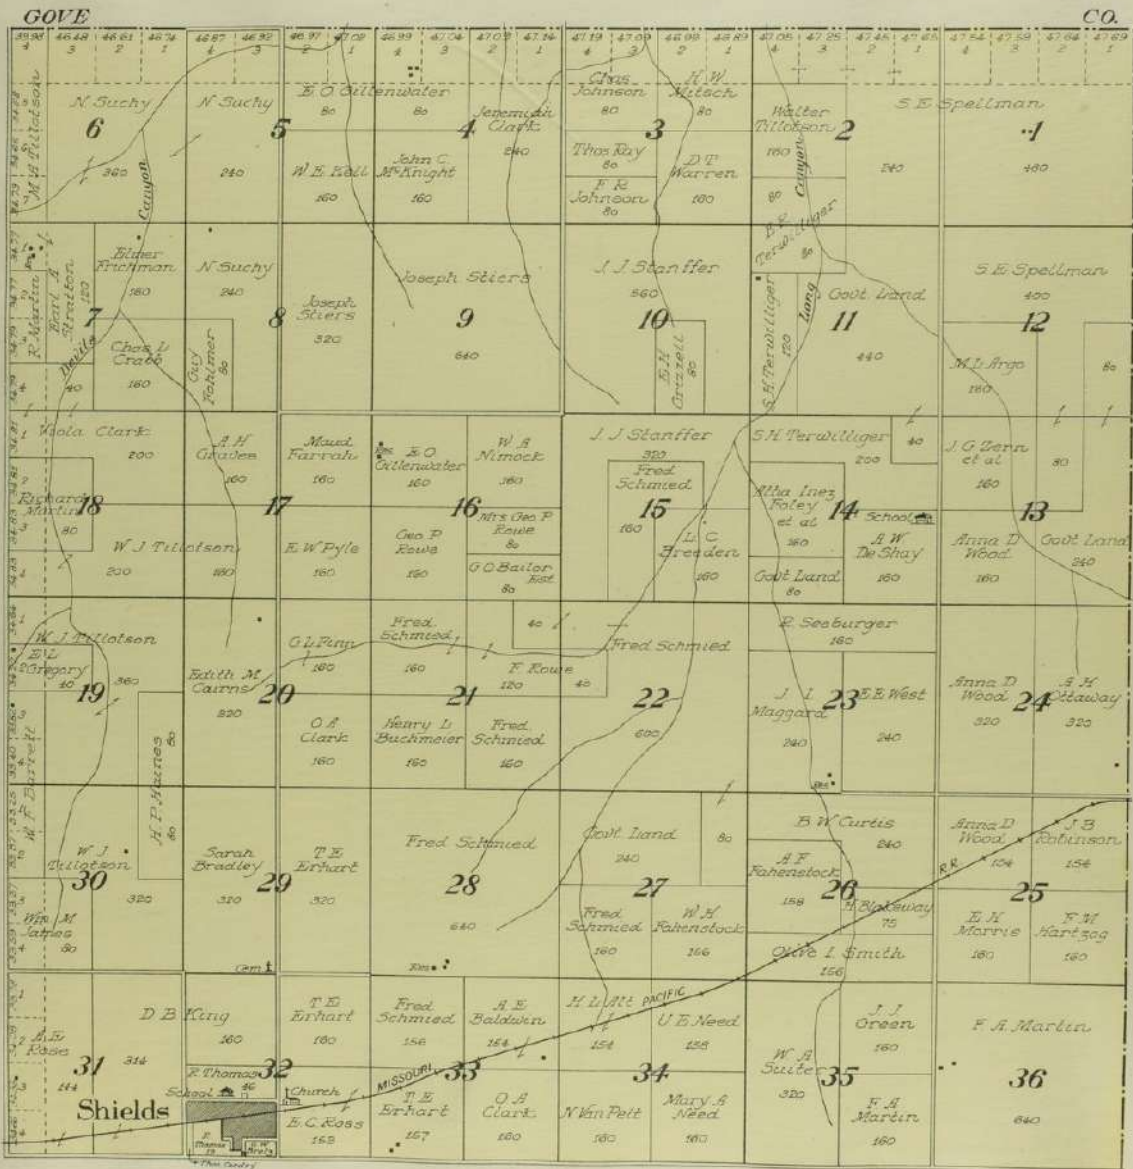 GOVE CO.
39.98 46.48 46.61 46.74 46.87 46.92 46.97 47.02 46.99 47.04 47.09 47.14 47.19 47.09 46.99 46.89 47.05 47.25 47.45 47.65 47.54 47.59 47.64 47.69
4 3 2 1 4 3 2 1 4 3 2 1 4 3 2 1 4 3 2 1 4 3 2 1
M A Tillotson
N Suchy
6
360
Canyon
N Suchy
5
240
E O Gillenwater
80
80
W E Roll
160
John C.
McKnight
160
4
Jeremiah
Clark
240
Chas
Johnson
80
H W
Mitsch
80
3
Thos Ray
80
F R
Johnson
80
D T
Warren
160
Walter
Tillotson
160
2
Canyon
80
240
S E Spellman
1
480
R Martin
Earl A
Stratton
120
7
Devils
40
Elmer
Frichman
160
Chas L
Crabb
160
N Suchy
240
8
Guy
Fohlmer
80
Joseph
Stiers
320
Joseph Stiers
9
640
J. J Stanffer
560
10
E H
Grizzell
80
B R
Terwilliger
80
S H Terwilliger
120
Long
Govt Land
11
440
S E Spellman
400
12
M L Argo
160
80
Viola Clark
200
Richard
Martin
80
18
W J Tillotson
200
160
A H
Graves
160
17
Maud
Farrah
160
E W Pyle
160
Res
E O
Gillenwater
160
W A
Nimock
160
16
Geo P
Rowe
160
Mrs Geo P
Rowe
80
G O Bailor
Est
80
J. J Stanffer
320
Fred
Schmied
160
15
L C
Breeden
160
S H Terwilliger
200
40
Altha Inez
Foley
et al
160
14
School
A W
De Shay
160
Govt Land
80
J. G Zenn
et al
160
80
13
Anna D
Wood
160
Govt Land
240
W J Tillotson
E L
Gregory
40
19
360
W F Barrett
H. P. Haines
80
80
Edith M
Cairns
320
20
G L Finn
160
O A
Clark
160
Fred
Schmied
160
21
Henry L
Buchmeier
160
40
F Rowe
120
40
Fred
Schmied
160
Fred Schmied
22
600
R Seeburger
160
J I
Maggard
240
23
E E West
240
Res
Anna D
Wood
320
24
A H
Ottaway
320
W J
Tillotson
30
320
Wm M
James
80
Sarah
Bradley
320
29
Cem
T E
Erhart
320
Fred Schmied
28
640
Res
Govt Land
240
80
27
Fred
Schmied
160
W H
Fahenstock
166
B W Curtis
240
A F
Fahenstock
158
26
H Blakeway
75
Olive I Smith
156
Anna D
Wood
154
J B
Robinson
154
R.R.
25
E H
Morris
160
F M
Hartzog
160
A E
Rose
144
31
D B King
314
160
R Thomas
46
32
School
Shields
Church
T E
Erhart
160
E. C. Ross
153
Fred
Schmied
156
A E
Baldwin
154
33
MISSOURI
T E
Erhart
157
O A
Clark
160
H L Alt
154
PACIFIC
U E Need
158
34
N Van Pelt
160
Mary A
Need
160
W A
Suiter
320
35
J. J.
Green
160
F A
Martin
160
F A Martin
36
640